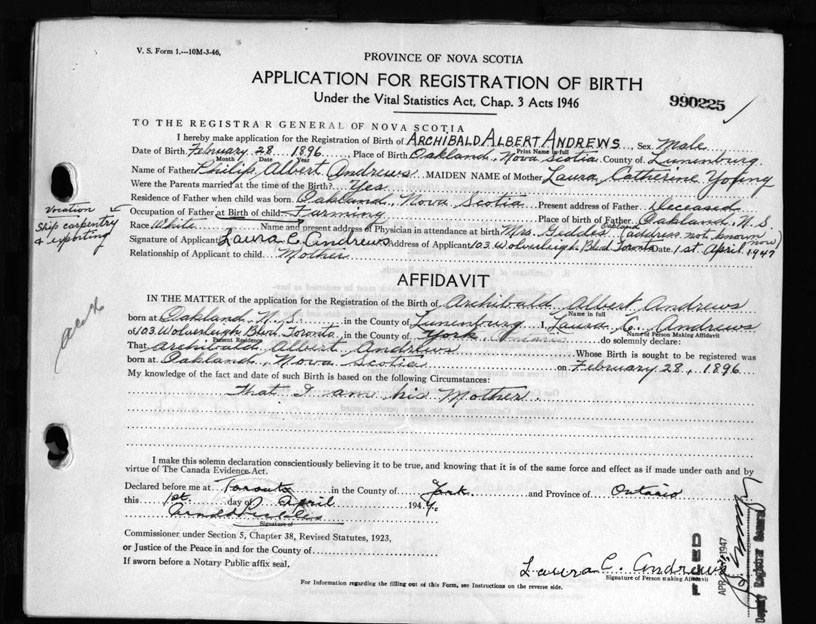 V. S. Form 1.—10M-3-46.
PROVINCE OF NOVA SCOTIA
APPLICATION FOR REGISTRATION OF BIRTH
Under the Vital Statistics Act, Chap. 3 Acts 1946
990225
TO THE REGISTRAR GENERAL OF NOVA SCOTIA
I hereby make application for the Registration of Birth of ARCHIBALD ALBERT ANDREWS Sex Male
Print Name in full
Date of Birth February 28 1896 Place of Birth Oakland, Nova Scotia County of Lunenburg.
Month Date Year
Name of Father Philip Albert Andrews MAIDEN NAME of Mother Laura Catherine Young
Were the Parents married at the time of the Birth? Yes
Residence of Father when child was born. Oakland, Nova Scotia Present address of Father Deceased
Vocation
Ship carpentry
& exporting
Occupation of Father at Birth of child Farming Place of birth of Father Oakland, N.S.
Race White Name and present address of Physician in attendance at birth Mrs. Geddes Oakland (address not known now)
Signature of Applicant Laura C. Andrews Address of Applicant 103 Wolverleigh Blvd Toronto Date 1st April 1947
Relationship of Applicant to child Mother
AFFIDAVIT
IN THE MATTER of the application for the Registration of the Birth of Archibald Albert Andrews
Name in full
born at Oakland N.S. in the County of Lunenburg I, Laura C. Andrews
Name of Person Making Affidavit
of 103 Wolverleigh Blvd. Toronto in the County of York Ontario do solemnly declare:
Present Residence
That Archibald Albert Andrews Whose Birth is sought to be registered was
born at Oakland, Nova Scotia on February 28, 1896
My knowledge of the fact and date of such Birth is based on the following Circumstances:
That I am his Mother.
I make this solemn declaration conscientiously believing it to be true, and knowing that it is of the same force and effect as if made under oath and by
virtue of The Canada Evidence Act.
Declared before me at Toronto in the County of York and Province of Ontario
this 1st day of April 1947.
Arnold
Signature of
Commissioner under Section 5, Chapter 38, Revised Statutes, 1923,
or Justice of the Peace in and for the County of
If sworn before a Notary Public affix seal.
Laura C. Andrews
Signature of Person making Affidavit
For Information regarding the filling out of this Form, see Instructions on the reverse side.
FILED
APR 1947
Deputy Registrar General